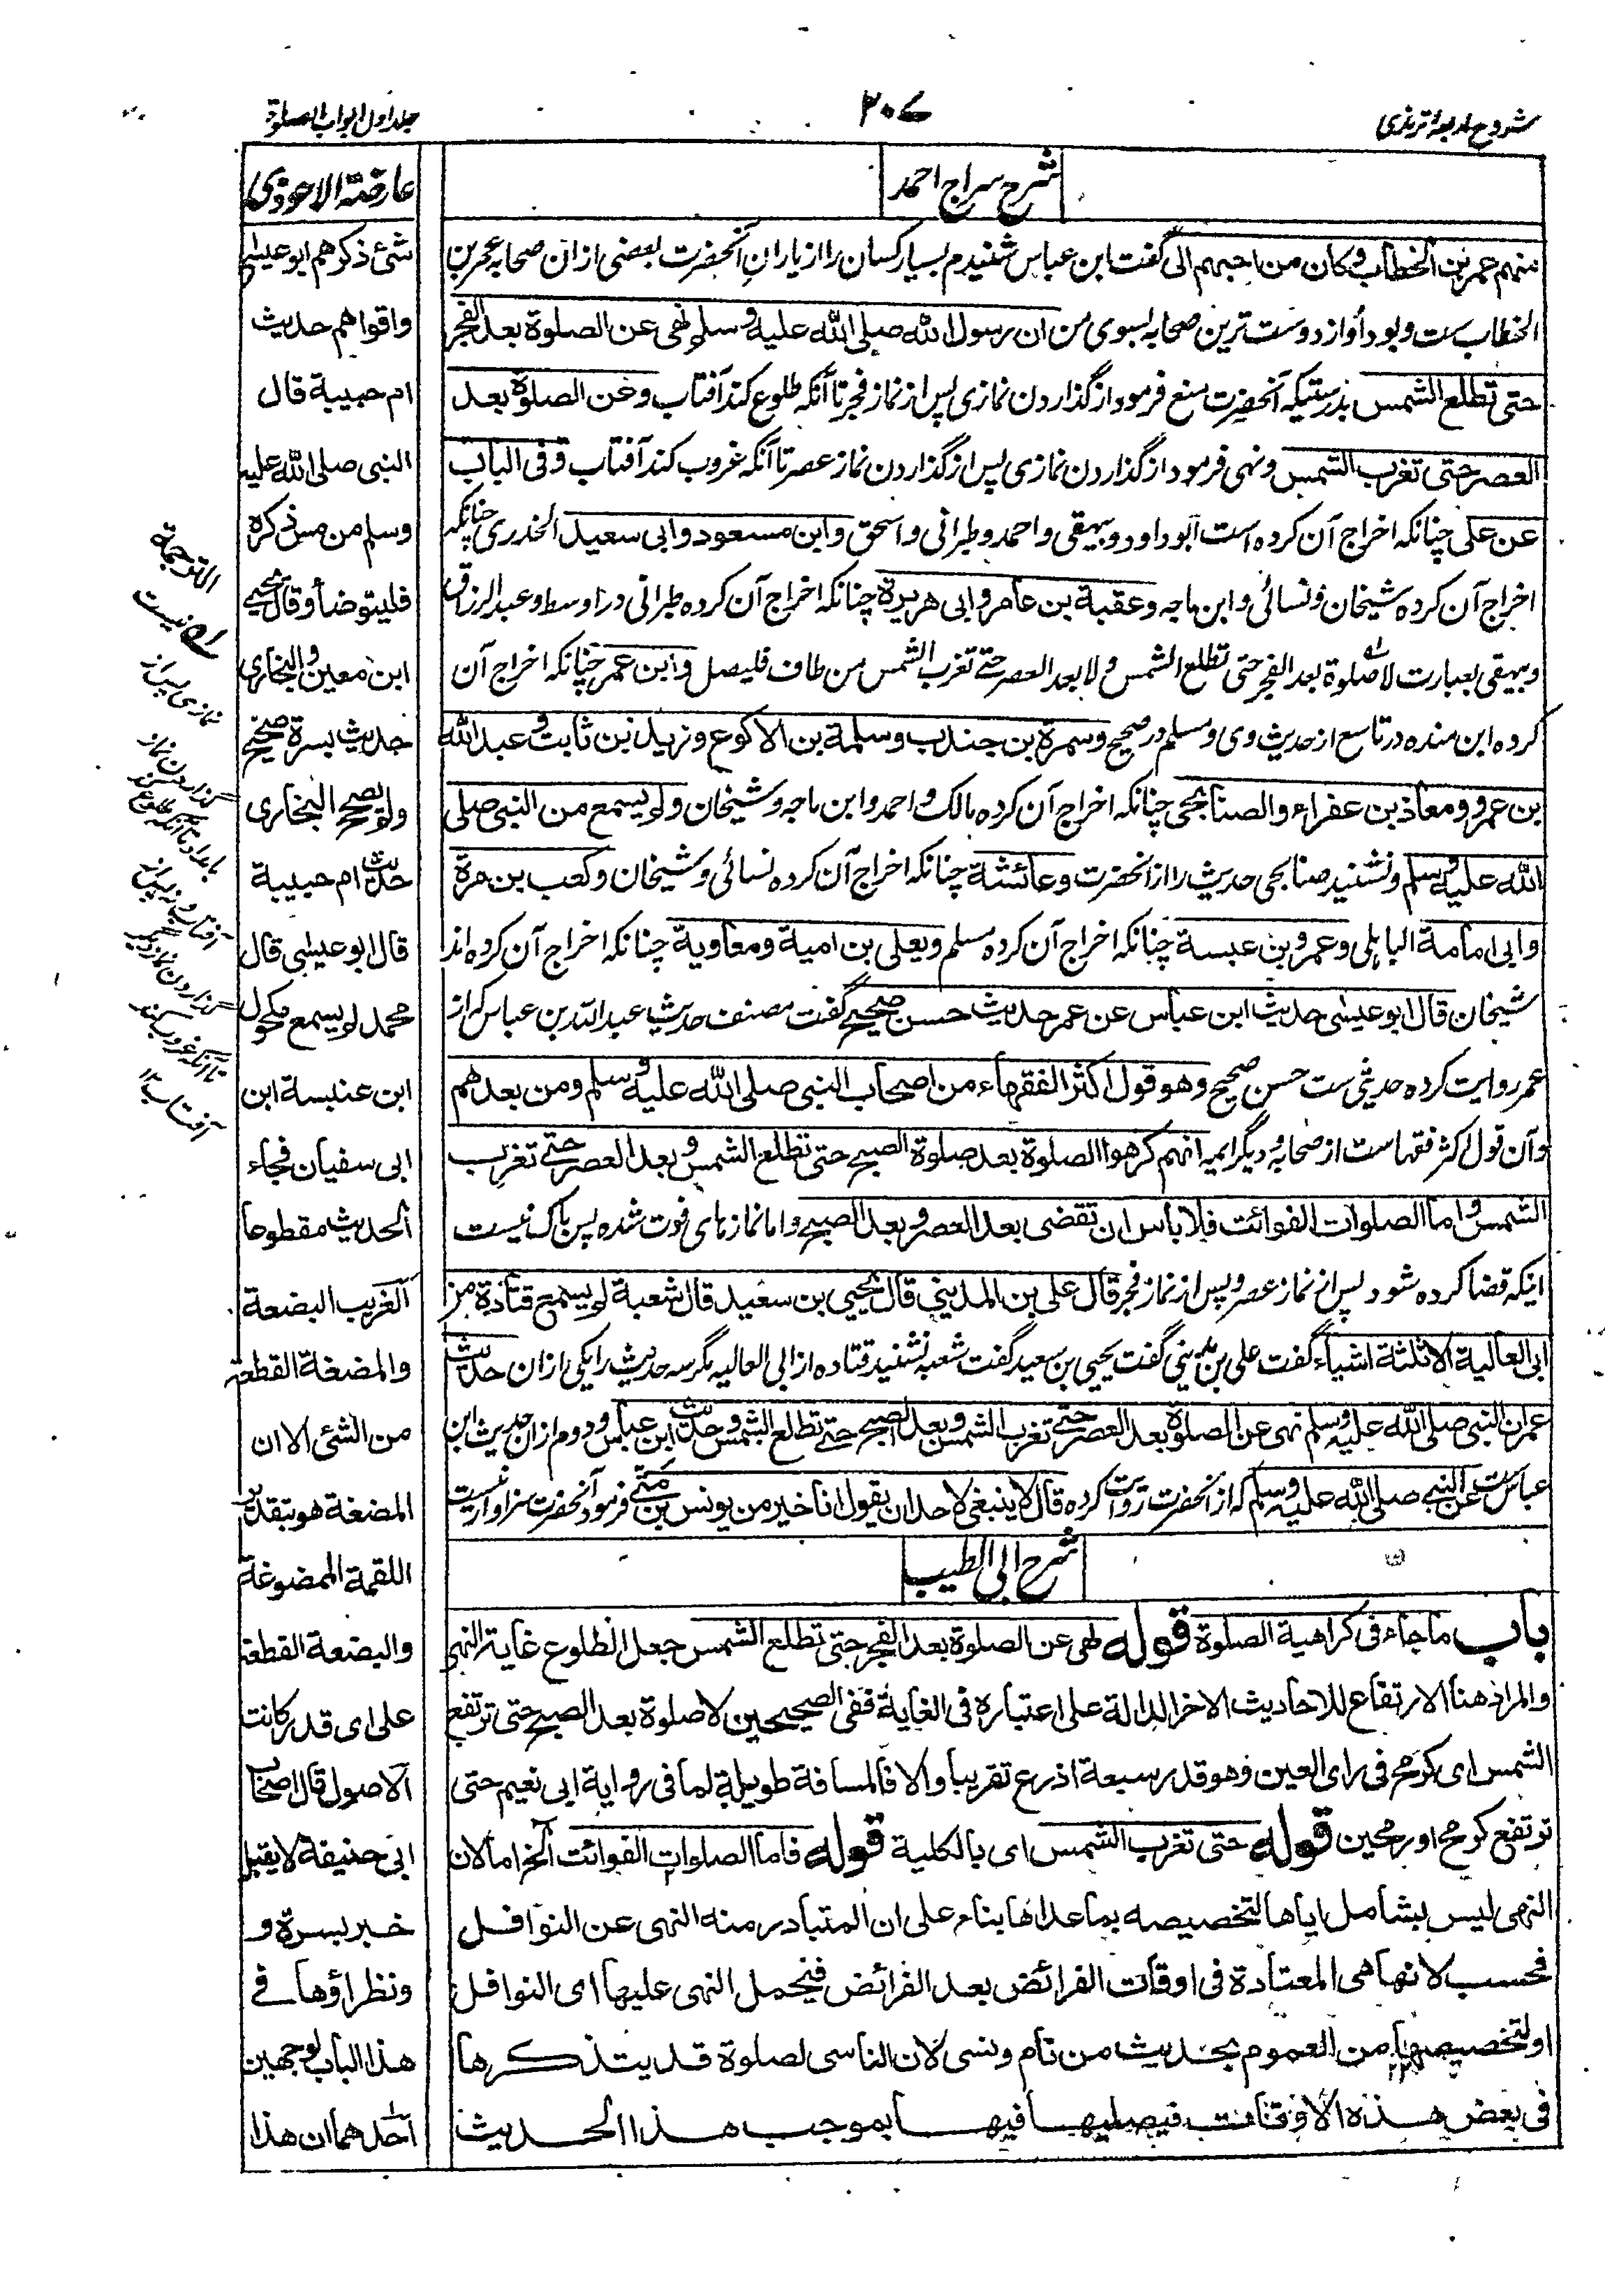 شروح اربعه ترمذی
۲۰۷
جلد اول ابواب الصلوة
شرح سراج احمد
منهم عمر بن الخطاب وكان من احبهم الی گفت ابن عباس شنیدم بسیار کسان را از یاران آنحضرت بعضی ازان صحابه عمر بن
الخطاب ست و بود او از دوست ترین صحابه بسوی من ان رسول الله صلی الله علیه وسلم نهی عن الصلوة بعد الفجر
حتی تطلع الشمس بدرستیکه آنحضرت منع فرمود از گذاردن نمازی پس از نماز فجر تا آنکه طلوع کند آفتاب وعن الصلوة بعد
العصر حتی تغرب الشمس و نهی فرمود از گذاردن نمازی پس از گذاردن نماز عصر تا آنکه غروب کند آفتاب وفی الباب
عن علی چنانکه اخراج آن کرده است ابوداود و بیهقی و احمد و طبرانی و اسحق وابن مسعود وابی سعید الخدری چنانکه
اخراج آن کرده شیخان و نسائی و ابن ماجه وعقبة بن عامر وابی هریرة چنانکه اخراج آن کرده طبرانی در اوسط و عبد الرزاق
و بیهقی بعبارت لا صلوة بعد الفجر حتی تطلع الشمس ولا بعد العصر حتے تغرب الشمس من طاف فلیصل وابن عمر چنانکه اخراج آن
کرده ابن منده در تاسع از حدیث وی و مسلم در صحیح وسمرة بن جندب وسلمة بن الاکوع وزید بن ثابت وعبد الله
بن عمرو ومعاذ بن عفراء والصنابحی چنانکه اخراج آن کرده مالک و احمد و ابن ماجه و شیخان ولم یسمع من النبی صلی
الله علیه وسلم و نشنید صنابحی حدیث را از آنحضرت وعائشة چنانکه اخراج آن کرده نسائی و شیخان وکعب بن مرة
وابی امامة الباهلی وعمرو بن عبسة چنانکه اخراج آن کرده مسلم ویعلی بن امیة ومعاویة چنانکه اخراج آن کرده اند
شیخان قال ابو عیسی حدیث ابن عباس عن عمر حدیث حسن صحیح گفت مصنف حدیث عبد الله بن عباس که از
عمر روایت کرده حدیثی ست حسن صحیح وهو قول اکثر الفقهاء من اصحاب النبی صلی الله علیه وسلم ومن بعدهم
وآن قول اکثر فقها ست از صحابه و دیگر ایمه انهم کرهوا الصلوة بعد صلوة الصبح حتی تطلع الشمس وبعد العصر حتے تغرب
الشمس واما الصلوات الفوائت فلا بأس ان تقضی بعد العصر وبعد الصبح و اما نمازهای فوت شده پس باک نیست
اینکه قضا کرده شود پس از نماز عصر و پس از نماز فجر قال علی بن المدینی قال یحیی بن سعید قال شعبة لم یسمع قتادة من
ابی العالیة الا ثلثة اشیاء گفت علی بن مدینی گفت یحیی بن سعید گفت شعبه نشنید قتاده از ابی العالیه مگر سه حدیث را یکی ازان حدیث
عمران النبی صلی الله علیه وسلم نهی عن الصلوة بعد العصر حتے تغرب الشمس وبعد الصبح حتے تطلع الشمس وحدیث ابن عباس و دوم ازان حدیث ابن
عباس ست عن النبی صلی الله علیه وسلم که از آنحضرت روایت کرده قال لا ینبغی لاحد ان یقول انا خیر من یونس بن متی فرمود آنحضرت سزاوار نیست
شرح ابی الطیب
باب ماجاء فی کراهیة الصلوة قوله نهی عن الصلوة بعد الفجر حتی تطلع الشمس جعل الطلوع غایة النهی
والمراد هنا الارتفاع للاحادیث الاخر الدالة علی اعتباره فی الغایة ففی الصحیحین لا صلوة بعد الصبح حتی ترتفع
الشمس ای کرمح فی رای العین وهو قدر سبعة اذرع تقریبا والا فالمسافة طویلة لما فی روایة ابی نعیم حتی
ترتفع کرمح او رمحین قوله حتی تغرب الشمس ای بالکلیة قوله فاما الصلوات الفوائت الخ اما لان
النهی لیس بشامل ایاها لتخصیصه بما عداها بناء علی ان المتبادر منه النهی عن النوافل
فحسب لانها هی المعتادة فی اوقات الفرائض بعد الفرائض فیحمل النهی علیها ای النوافل
او لتخصیصها من العموم بحدیث من نام ونسی لان الناسی لصلوة قد یتذکرها
فی بعض هذه الاوقات فیصلیها فیها بموجب هذا الحدیث
عارضة الاحوذی
شئ ذکرهم ابو عیسی
واقواهم حدیث
ام حبیبة قال
النبی صلی الله علیه
وسلم من مس ذکره
فلیتوضأ وقال یحیی
ابن معین والبخاری
حدیث بسرة صحیح
ولم یصحح البخاری
حدیث ام حبیبة
قال ابو عیسی قال
محمد لم یسمع مکحول
ابن عنبسة ابن
ابی سفیان فجاء
الحدیث مقطوعا
الغریب البضعة
والمضغة القطعة
من الشئ الا ان
المضغة هو بتقدیر
اللقمة الممضوغة
والبضعة القطعة
علی ای قدر کانت
الاصول قال اصحاب
ابی حنیفة لا یقبل
خبر بسرة و
ونظراؤها فے
هذا الباب لوجهین
احدهما ان هذا
الترجمة
نیست
نمازی پس از
گزاردن نماز
بامداد تا آنکه طلوع کند
آفتاب و نه پس از
گزاردن نماز دیگر
تا آنکه غروب کند
آفتاب ۱۲